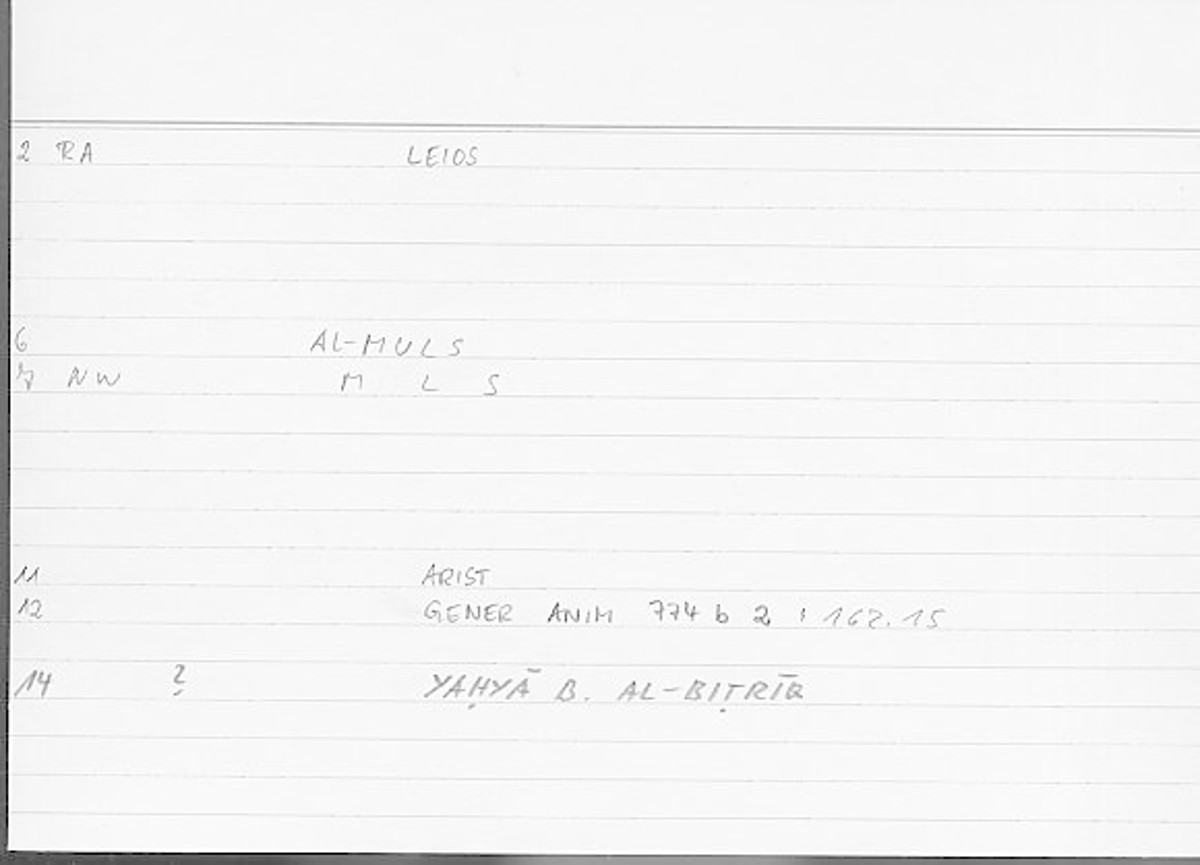 2 RA LEIOS
6 AL-MULS
7 NW M L S
11 ARIST
12 GENER ANIM 774 b 2 : 162.15
14 ? YAḤYĀ B. AL-BIṬRĪQ